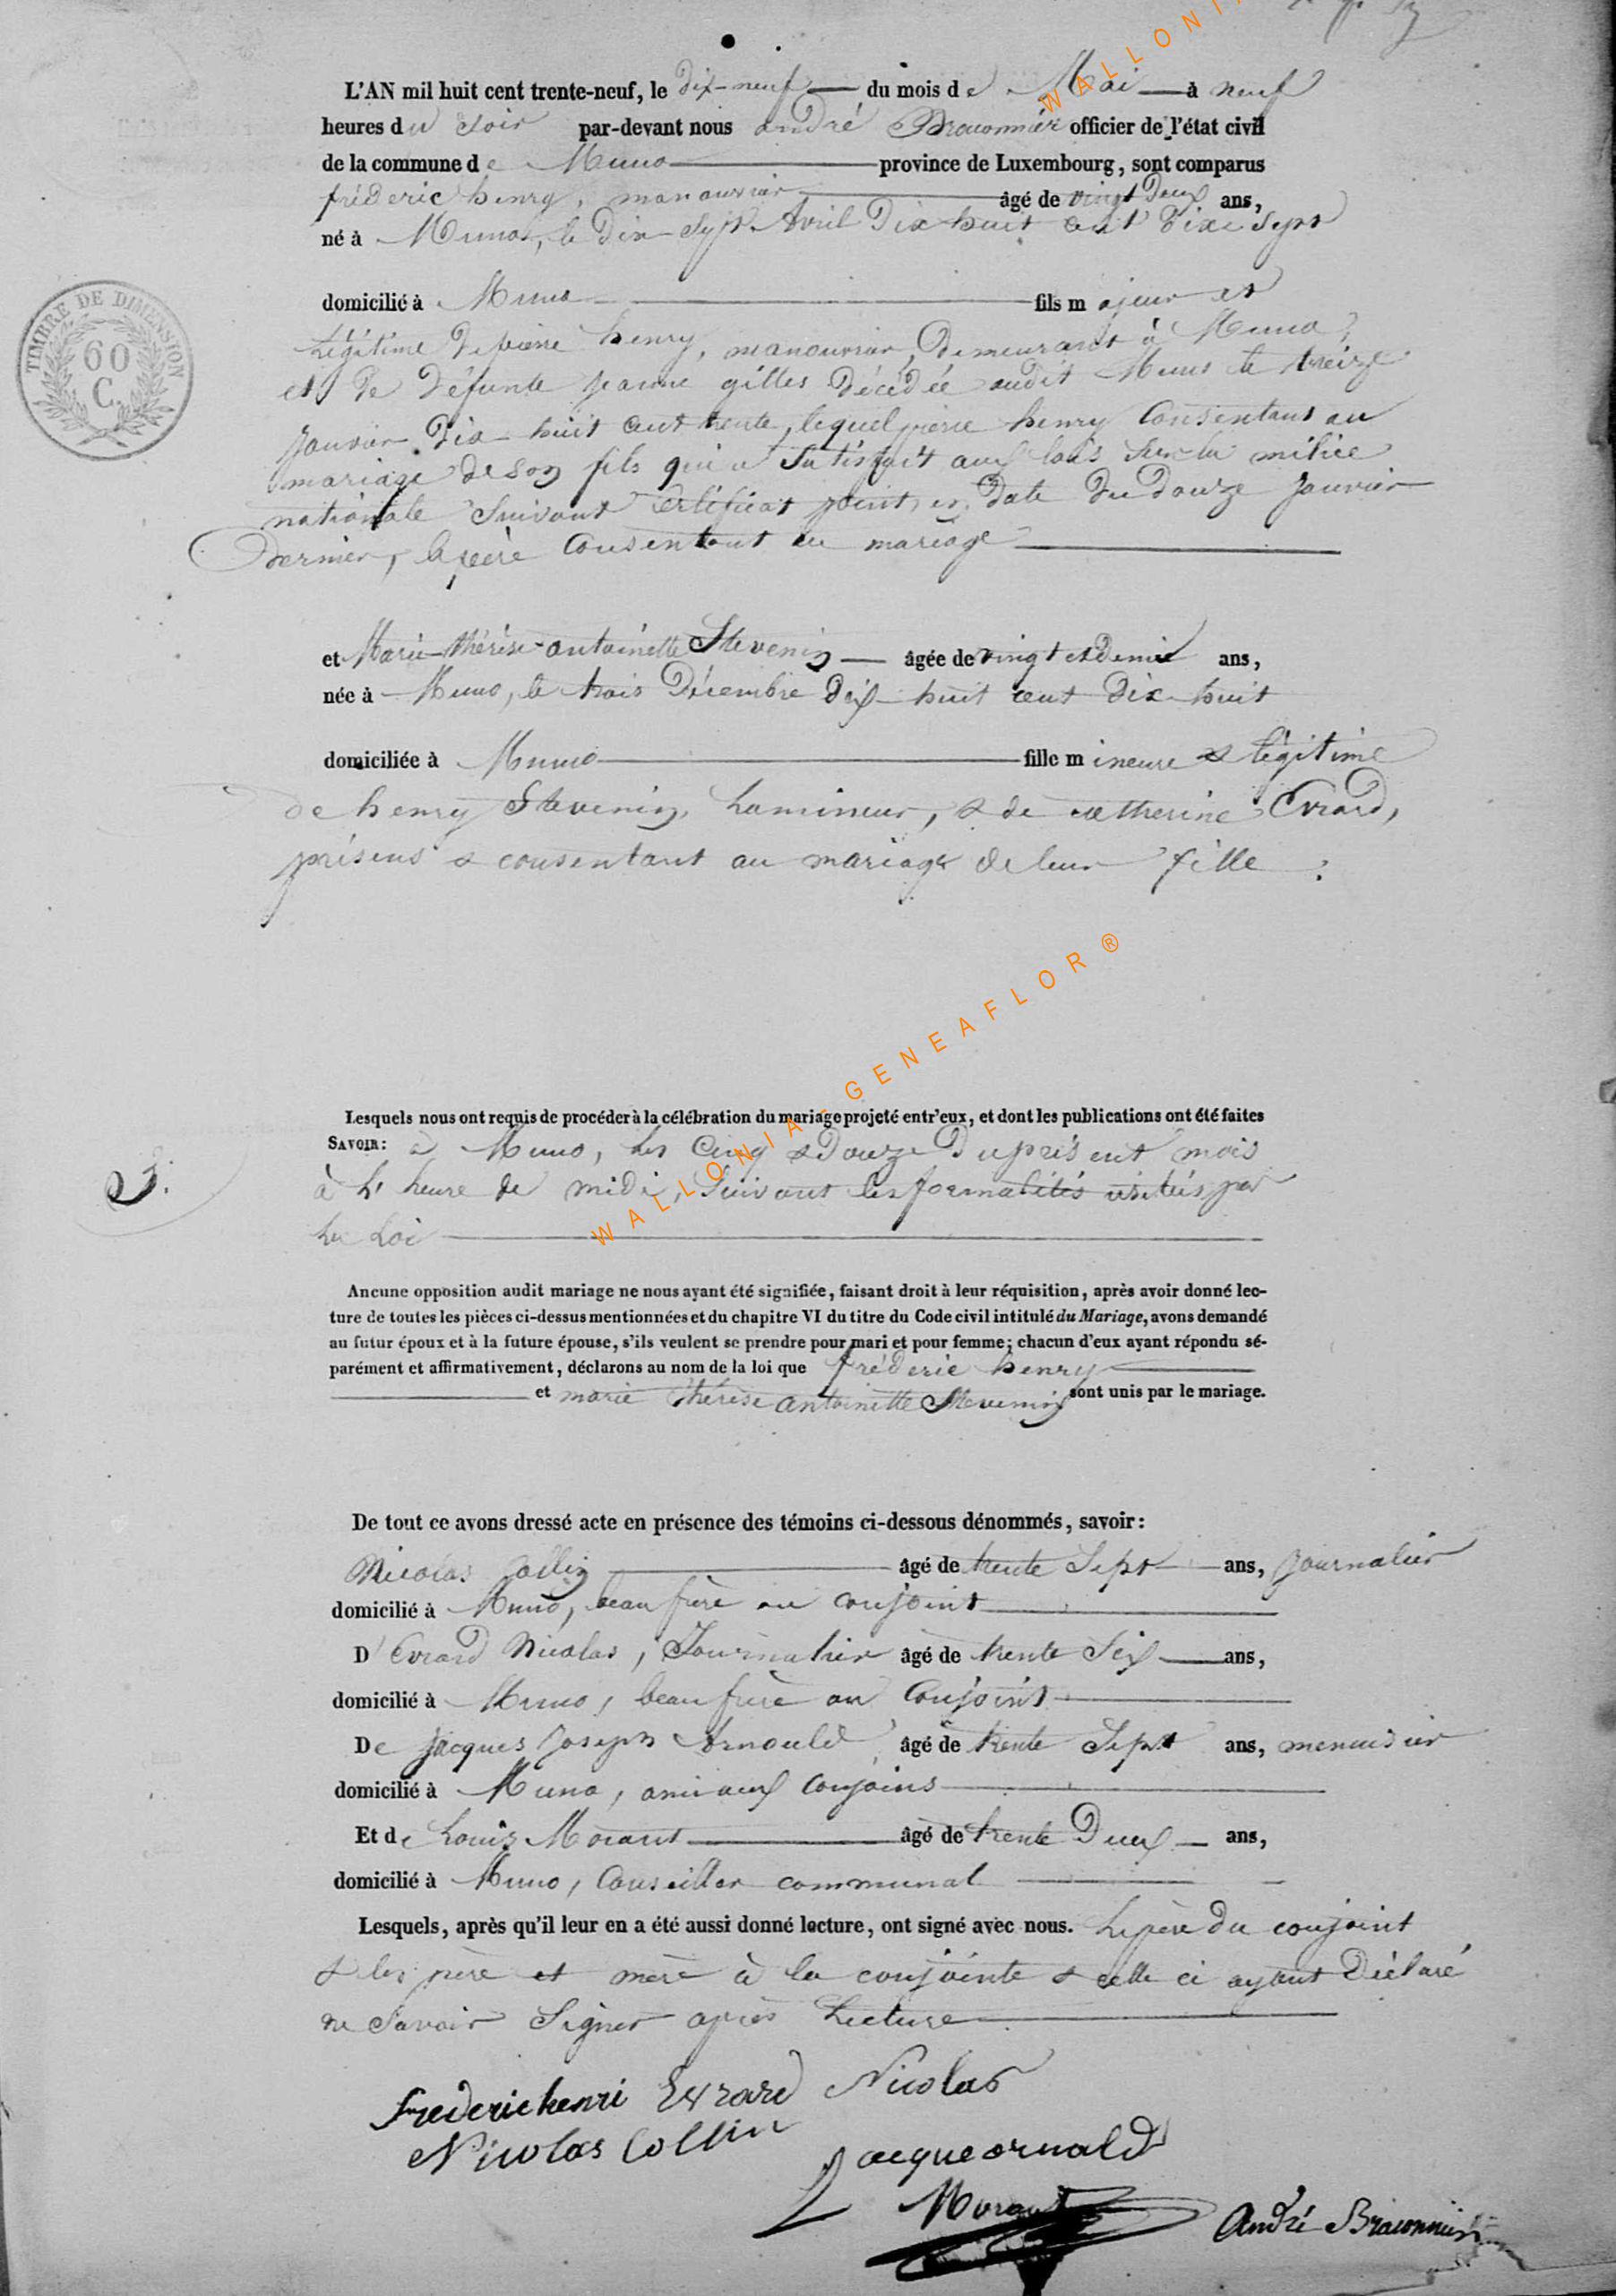 L'AN mil huit cent trente-neuf, le dix-neuf du mois de Mai à neuf
heures du soir par-devant nous andré Braconnier officier de l'état civil
de la commune de Muno province de Luxembourg, sont comparus
fréderic henry, manouvrier âgé de vingt Deux ans,
né à Muno, le Dix Sept Avril Dix huit cent Dixe Sept
domicilié à Muno fils majeur et
TIMBRE DE DIMENSION
60
C.
Légitime De pierre henry, manouvrier, Demeurant à Muno,
et De Défunte jeanne gilles Décédée audit Muno le treize
janvier Dix huit cent trente, lequel pierre henry Consentant au
mariage de son fils qui a Satisfait aux lois Sur la milice
nationale Suivant Certificat joint, en Date Du Douze janvier
Dernier, le père Consentant au mariage
et Marie-thérèse-antoinette Stevenin âgée de vingt et demie ans,
née à Muno, le trois Décembre Dix-huit cent Dix-huit
domiciliée à Muno fille mineure & légitime
de henry Stevenin, Lamineur, & de catherine Evrard,
présens & consentant au mariage de leur fille :
WALLONIA-GENEAFLOR ®
Lesquels nous ont requis de procéder à la célébration du mariage projeté entr'eux, et dont les publications ont été faites
SAVOIR: à Muno, les Cinq & Douze Du présent mois
à l' heure de midi, Suivant les formalités usitées par
La Loi
Aucune opposition audit mariage ne nous ayant été signifiée, faisant droit à leur réquisition, après avoir donné lec-
ture de toutes les pièces ci-dessus mentionnées et du chapitre VI du titre du Code civil intitulé du Mariage, avons demandé
au futur époux et à la future épouse, s'ils veulent se prendre pour mari et pour femme; chacun d'eux ayant répondu sé-
parément et affirmativement, déclarons au nom de la loi que fréderic henry
et marie thérèse antoinette Stevenin sont unis par le mariage.
De tout ce avons dressé acte en présence des témoins ci-dessous dénommés, savoir:
Nicolas Collin âgé de trente Sept ans, journalier
domicilié à Muno, beau frère au conjoint
D'Evrard Nicolas, Journalier âgé de trente Six ans,
domicilié à Muno, beau frère au Conjoint
De jacques joseph Arnould âgé de trente Sept ans, menuisier
domicilié à Muno, ami aux Conjoins
Et de Louis Morant âgé de trente Deux ans,
domicilié à Muno, Conseiller communal
Lesquels, après qu'il leur en a été aussi donné lecture, ont signé avec nous. Le père Du conjoint
& les père et mère à la conjointe & celle ci ayant Déclaré
ne Savoir Signer après Lecture
frederic henri Evrard Nicolas
Nicolas Collin
Jacque arnald
L Morant
André Braconnier